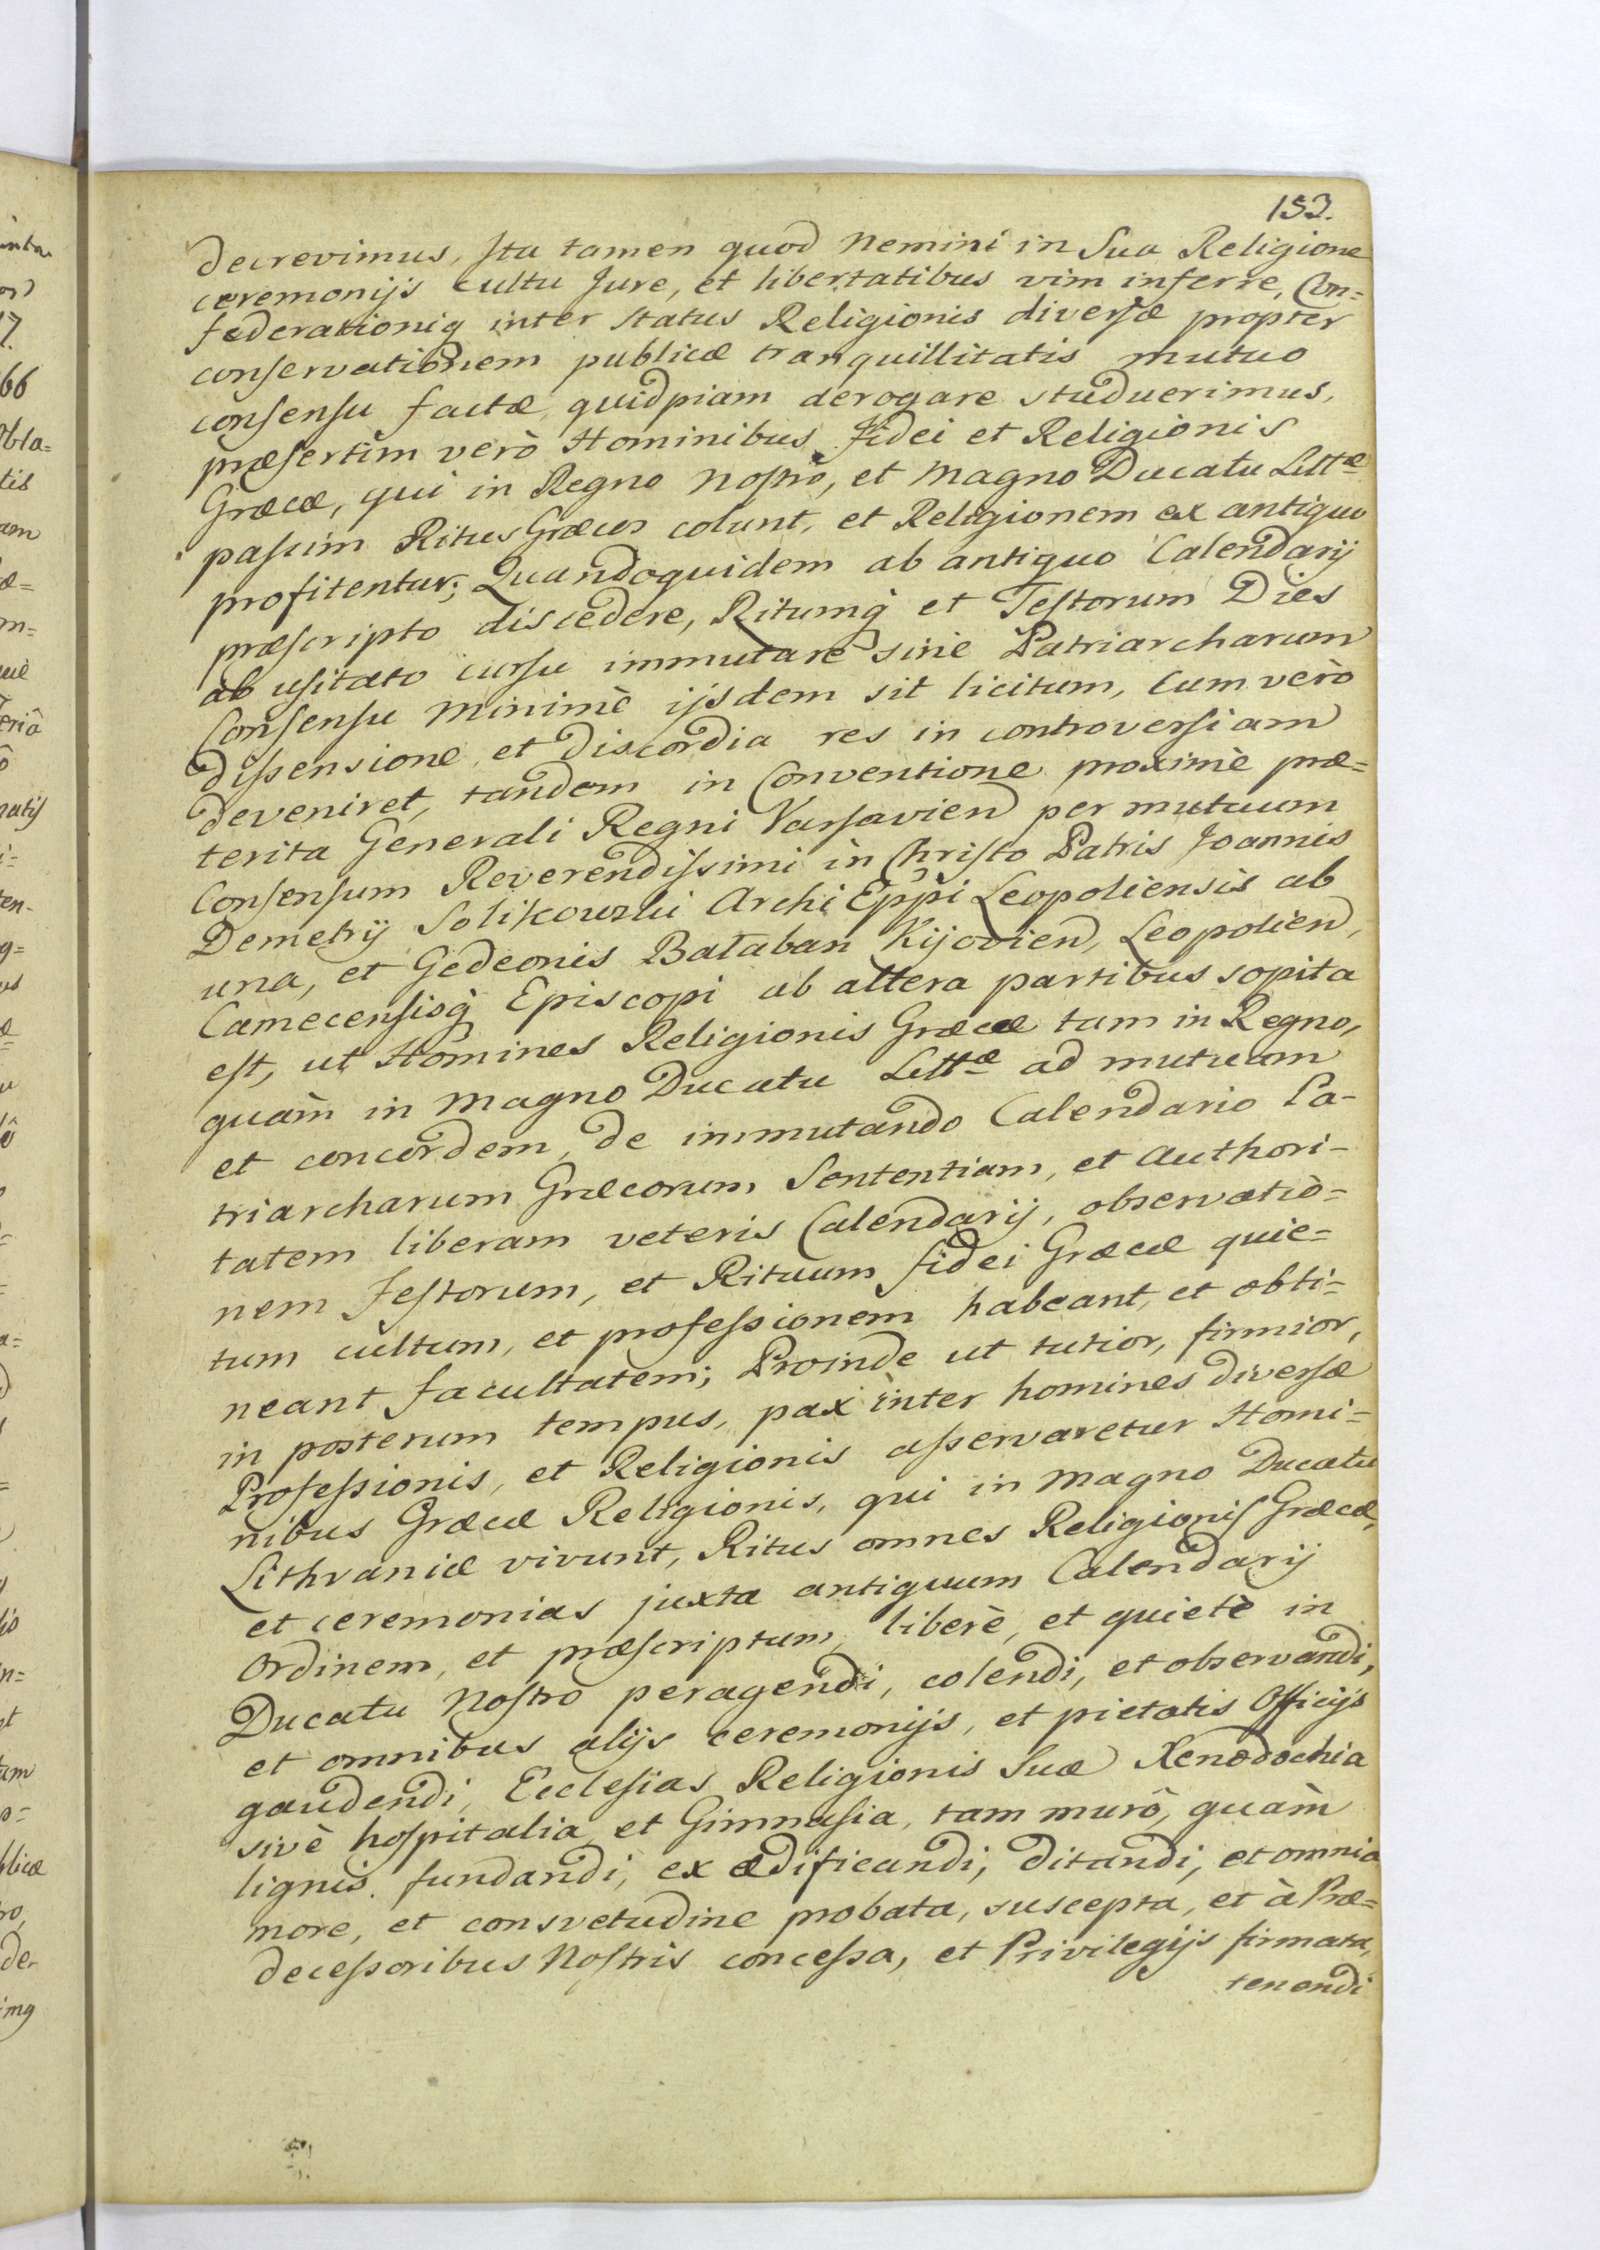 153.
decrevimus, Ita tamen quod Nemini in Sua Religione
ceremonijs cultu Jure, et libertatibus vim inferre, Con=
federationiq inter status Religionis diversæ propter
conservationem publicæ tranquillitatis mutuo
consensu factæ, quidpiam derogare studuerimus,
præsertim verò Hominibus Fidei et Religionis
Græcæ, qui in Regno Nostro, et Magno Ducatu Littæ
passim Ritus Græcos colunt, et Religionem ex antiquo
profitentur; Quandoquidem ab antiquo Calendarij
præscripto discedere, Ritumq et Festorum Dies
ab usitato cursu immutare sine Patriarcharum
Consensu Minimè ijsdem sit licitum, Cum verò
dissensione, et discordia res in controversiam
deveniret, tandem in Conventione proximè præ=
terita Generali Regni Varsavien per mutuum
Consensum Reverendissimi in Christo Patris Joannis
Demetrij Solikowski Archi Eppi Leopoliensis ab
una, et Gedeonis Bałaban Kijovien, Leopolien,
Camecensisq Episcopi ab altera partibus sopita
est, ut Homines Religionis Græcæ tam in Regno,
quàm in Magno Ducatu Littæ ad mutuam
et concordem, de immutando Calendario Pa-
triarcharum Græcorum Sententiam, et Authori-
tatem liberam veteris Calendarij, observatio=
nem Festorum, et Rituum fidei Græcæ quie=
tum cultum, et professionem habeant, et obti=
neant facultatem; Proinde ut tutior, firmior,
in posterum tempus, pax inter homines diversæ
Professionis, et Religionis asservaretur Homi=
nibus Græcæ Religionis, qui in Magno Ducatu
Lithvaniæ vivunt, Ritus omnes Religionis Græcæ,
et ceremonias juxta antiquum Calendarij
Ordinem, et præscriptum, liberè, et quietè in
Ducatu Nostro peragendi, colendi, et observandi,
et omnibus alijs ceremonijs, et pietatis Officijs
gaudendi, Ecclesias Religionis Suæ Xenodochia
sivè hospitalia et Gimnasia, tam murô, quàm
lignis fundandi, ex ædificandi, ditandi, et omnia
more, et consvetudine probata, suscepta, et à Præ=
decessoribus Nostris concessa, et Privilegijs firmata,
tenendi